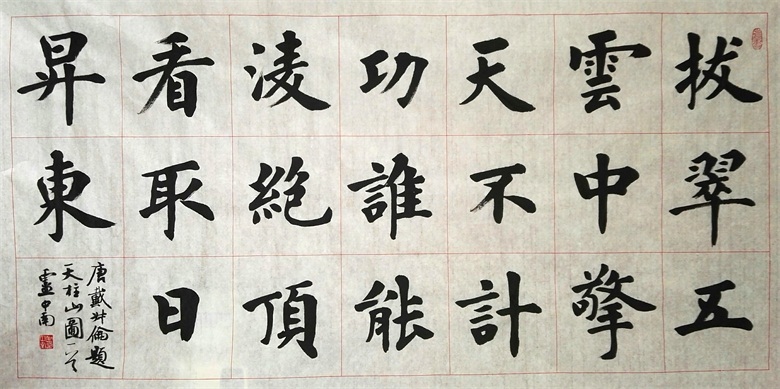 拔翠五
雲中擎
天不計
功誰能
淩絕頂
看取日
昇東
唐戴叔倫題
天柱山圖一首
盧中南